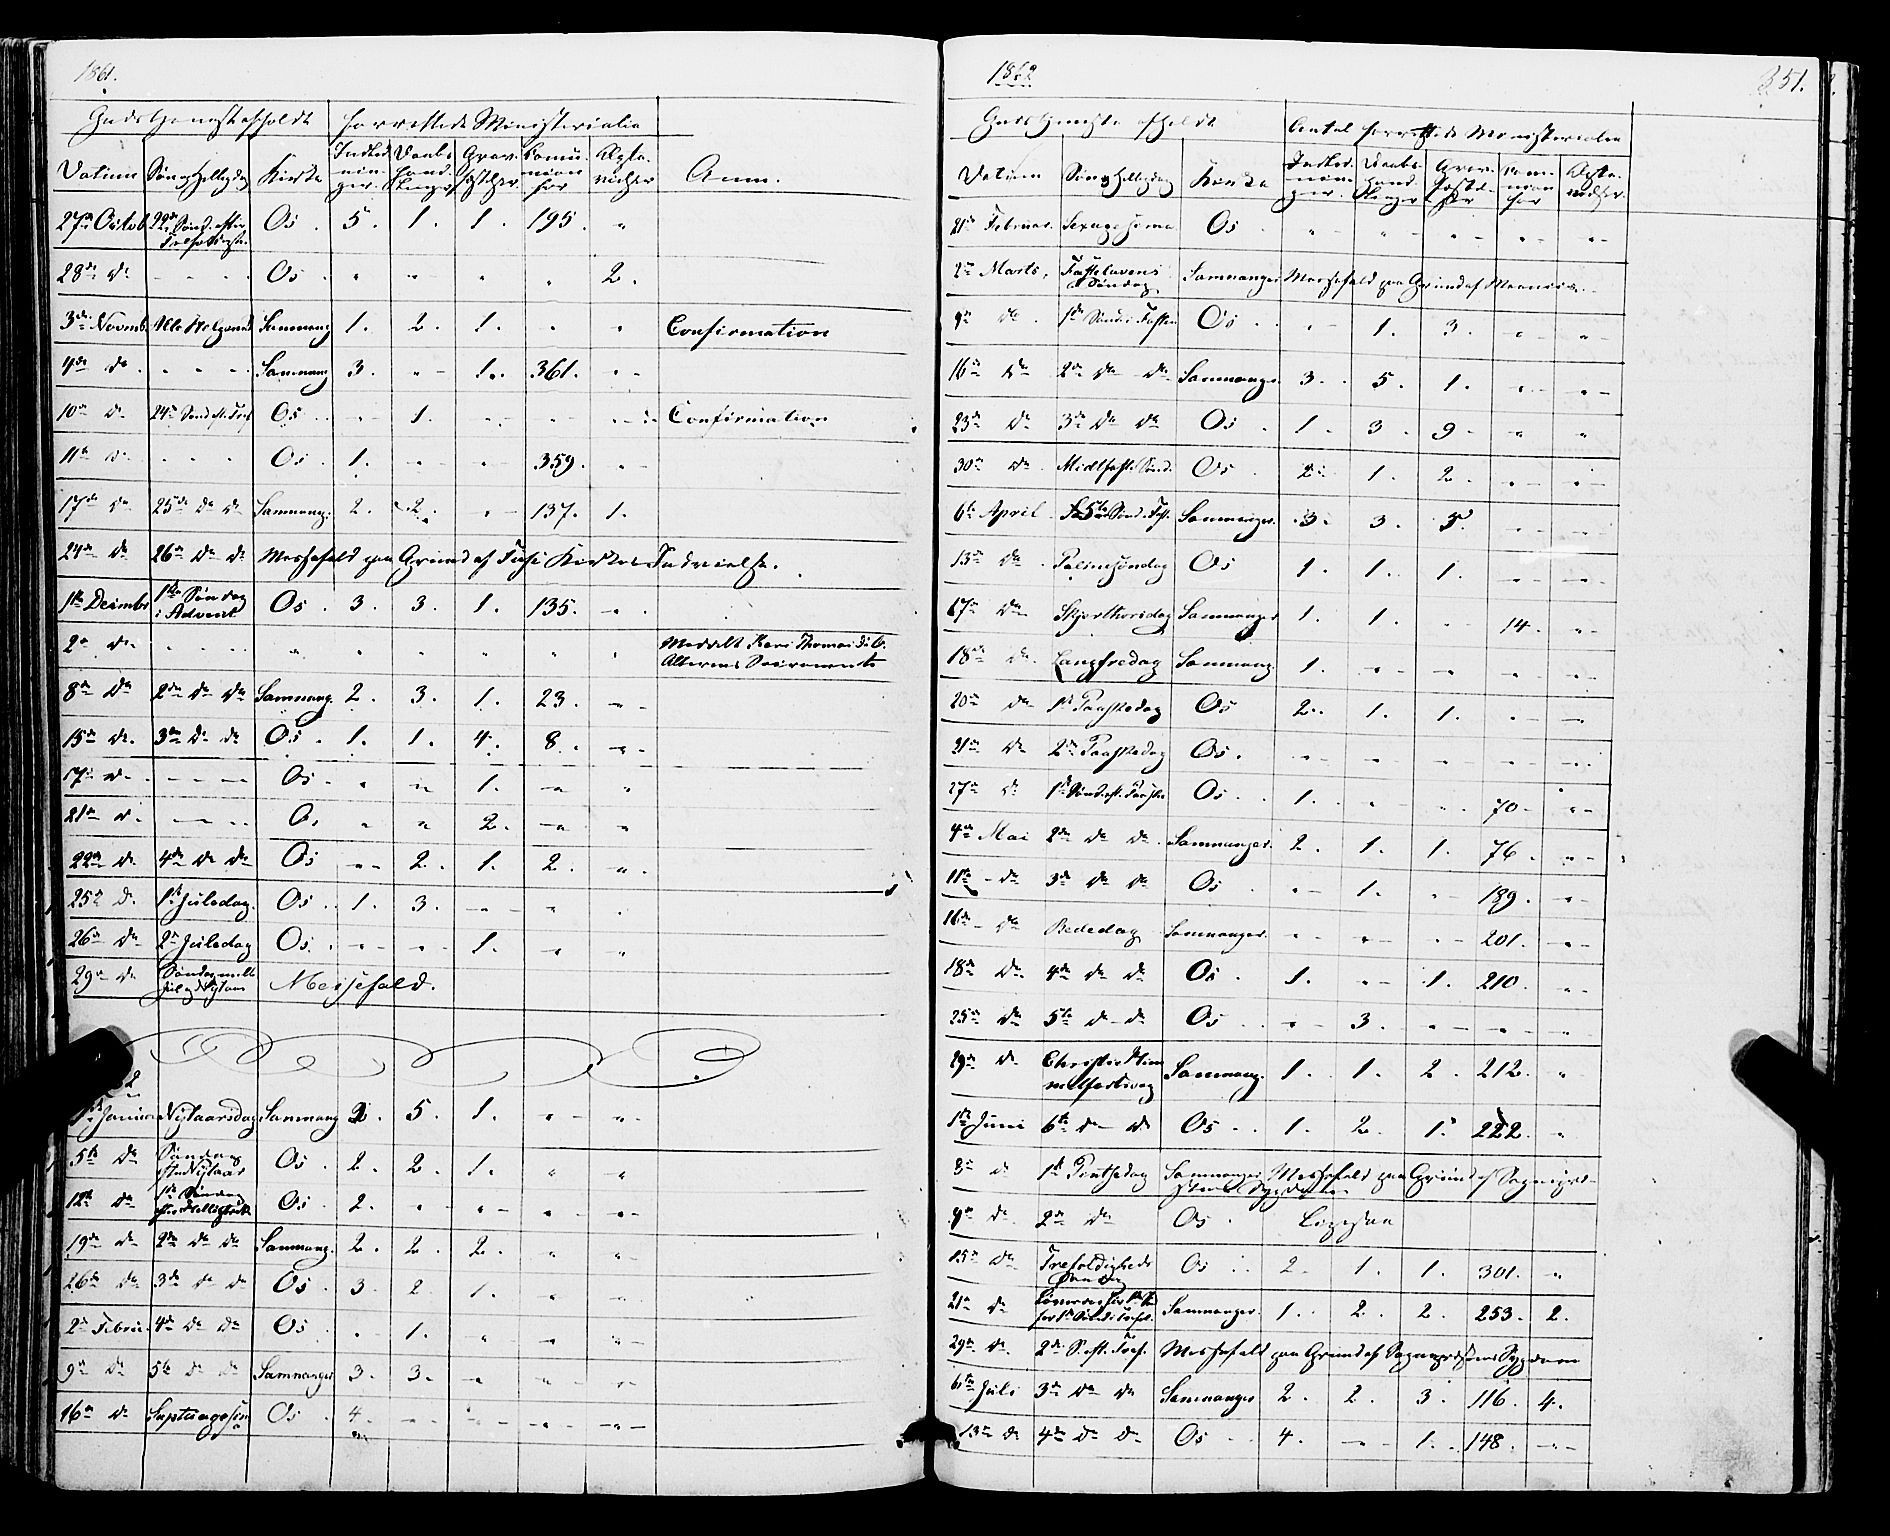 1861.
Gudstjenesteholdt forrettede Ministerialia
Datum Søn & Helligdag Kirke Indledninger Daabshandlinger Gravfæstelser Comunion for Ægtevielser Anm.
27de Octob 22de Sønd. efter Trefoldigh. Os 5. 1. 1. 195. "
28de do - - - Os " " " " 2.
3die Novemb Alle Helgensd Samnang 1. 2. 1. " " Confirmation
4de do - - - Samnang 3. " 1. 361. "
10de do 24de Sønd. eft. Tref Os " 1. " " " Confirmation
11te do - - - Os 1. " " 359. "
17de do 25de do do Samnang. 2. 2. " 137. 1.
24de do 26de do do Messefald paa Grund af Fuse Kirkes Indvielse.
1ste Decembr 1ste Søndag i Advent Os 3. 3. 1. 135. "
2den do - - - " " " " " " Meddelt Kari Thomasd.
Alterens Sacramente
8de do 2den do do Samnang. 2. 3. 1. 23. "
15de do 3die do do Os 1. 1. 4. 8. "
17de do - - - Os " " 1. " "
21de do - - - Os " " 2. " "
22de do 4de do do Os " 2. 1. 2. "
25de do 1ste Juledag. Os 1. 3. " " "
26de do 2den Juledag Os " " 1. " "
29de do Søndag mell. Jul og Nytaar Messefald.
1ste Januar Nytaarsdag Samnang 2. 5. 1. " "
5te do Søndag efter Nytaar Os 2. 2. 1. " "
12te do 1ste Søndag efter Helligtrek. Os 2. " " " "
19de do 2den do do Samnang. 2. 2. 2. " "
26de do 3die do do Os 3. 2. 1. " "
2den Februar 4de do do Os " 1. " " "
9de do 5te do do Samnanger 3. 3. " " "
16de do Septuagesim Os 4. " " " "
1862 351.
Gudstjeneste holdt Antal forrettede Ministerialia
Datum Søn & Helligdag Kirke Indledninger Daabshandlinger Gravfæstelser Comunion for Ægtevielser.
21de Februar. Sexagesima Os " " " " "
2den Marts, Fastelavens Søndag Samnanger Messefald paa Grund af
9de do 1ste Sønd. i Fasten Os " 1. 3. " "
16de do 2den do do Samnanger 3. 5. 1. " "
23de do 3die do do Os 1. 3. 9. " "
30de do Midtfaste Sønd. Os 2. 1. 2. " "
6te April 5te Sønd. i Fast. Samnanger. 3. 3. 5. " "
13de do Palmesøndag Os 1. 1. 1. " "
17de do Skjærthorsdag Samnanger 1. 1. " 14. "
18de do Langfredag Samnang. 1. " " " "
20de do 1ste Paaskedag Os 2. 1. 1. " "
21de do 2den Paaskedag Os. " " " " "
27de do 1ste Sønd. eft. Paaske Os 1. " " 70. "
4de Mai 2den do do Samnanger. 2. 1. 1. 76. "
11te do 3die do do Os " 1. " 189. "
16de do Bededag Samnanger. " " " 201. "
18de do 4de do do Os. 1. " 1. 210. "
25de do 5te do do Os " 3. " " "
29de do Christi Himmelfartsdag Samnang. 1. 1. 2. 212. "
1ste Juni 6te do do Os 1. 2. 1. 222. "
8de do 1ste Pintsedag Samnanger Messefald paa Grund af Sognepræstens Sygdom
9de do 2den do Os Ligesaa
15de do Trefoldigheds Søndag Os 2. 1. 1. 301. "
21de do Samnanger. 1. 2. 2. 253. 2.
29de do 2den S. eft. Tref. Messefald paa Grund af Sognepræstens Sygdom
6te Juli 3die do do Samnanger 2. 2. 3. 116. 4.
13de do 4de do do Os 4. " 1. 148. "